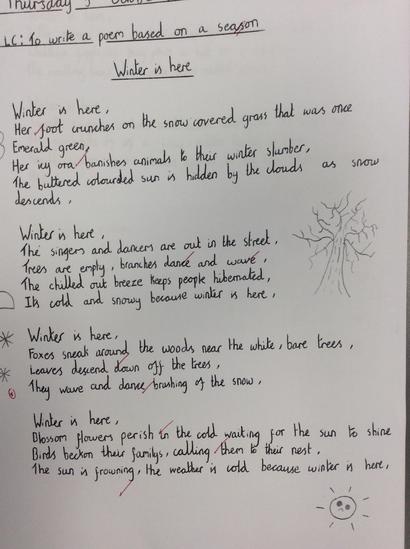 Thursday 5
LC: To write a poem based on a season
Winter is here
Winter is here,
Her foot crunches on the snow covered grass that was once
Emerald green,
Her icy ora banishes animals to their winter slumber,
The buttered colourded sun is hidden by the clouds as snow
descends,
Winter is here,
The singers and dancers are out in the street,
Trees are empty, branches dance and wave,
The chilled out breeze keeps people hibernated,
Its cold and snowy because winter is here,
Winter is here,
Foxes sneak around the woods near the white, bare trees,
Leaves descend down off the trees,
They wave and dance brushing of the snow,
Winter is here,
Blossom flowers perish in the cold waiting for the sun to shine
Birds beckon their familys, calling them to their nest,
The sun is frowning, the weather is cold because winter is here,